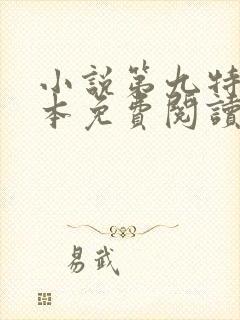 小說第九特
本免費閱讀
易武